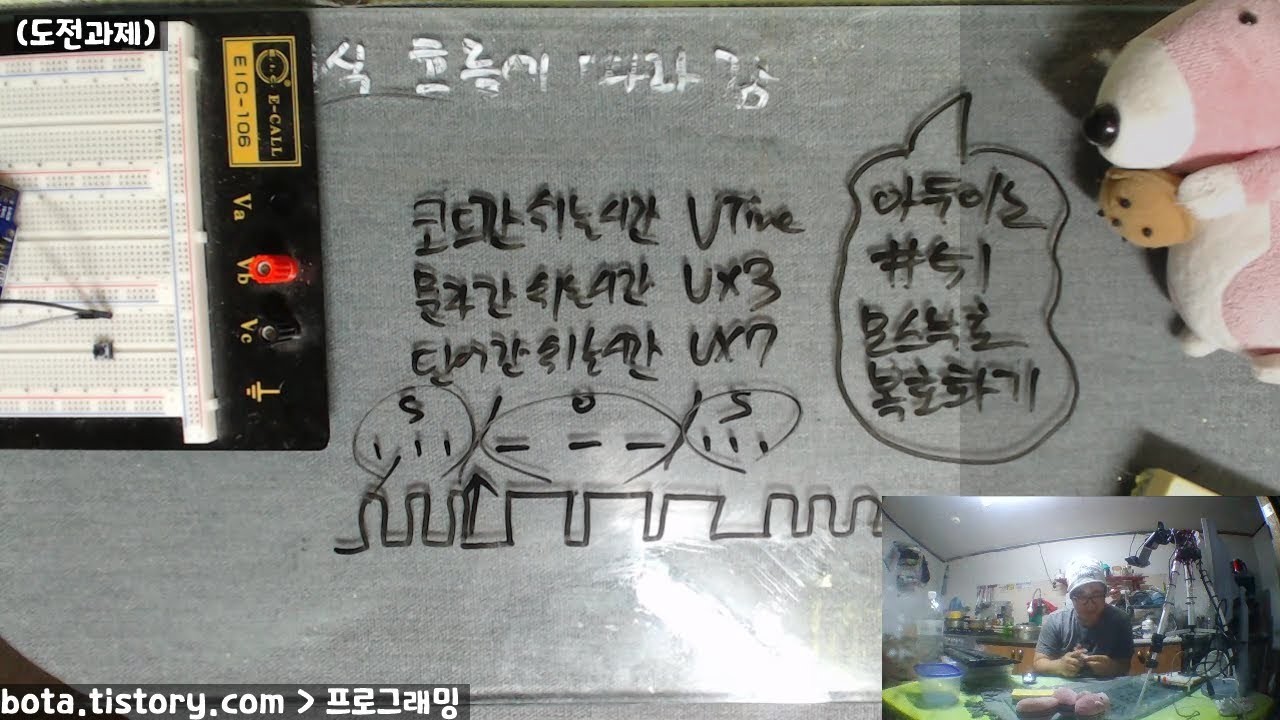 (도전과제)
식 흐름이 따라 감
E-CALL
EIC-106
Va
Vb
Vc
코드간 쉬는시간 UTime
문자간 쉬는시간 U×3
단어간 쉬는시간 U×7
S O S
아두이노
#51
모스부호
복호화기
bota.tistory.com > 프로그래밍